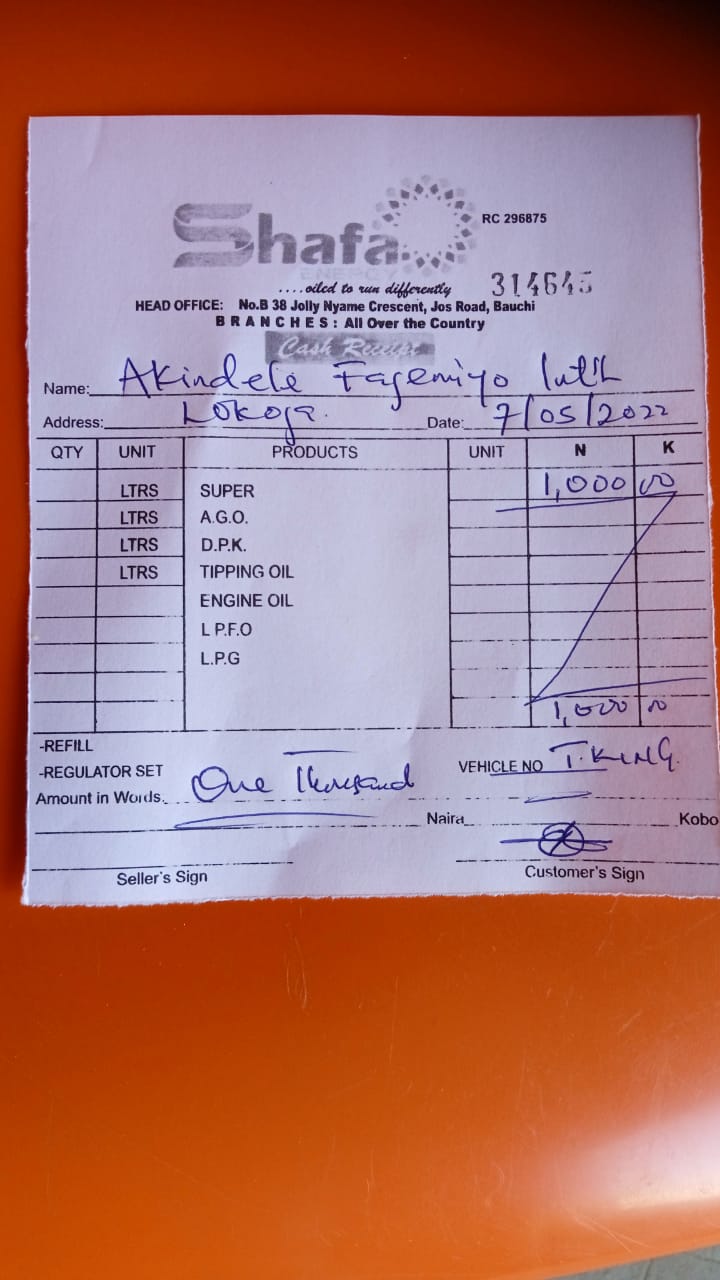 Shafa
ENERGY
RC 296875
....oiled to run differently
314645
HEAD OFFICE: No.B 38 Jolly Nyame Crescent, Jos Road, Bauchi
BRANCHES: All Over the Country
Cash Receipt
Name: Akindele Fasemiyo
Address: Lokoja. Date: 7/05/2022
QTY UNIT PRODUCTS UNIT N K
LTRS SUPER 1,000 00
LTRS A.G.O.
LTRS D.P.K.
LTRS TIPPING OIL
ENGINE OIL
L P.F.O
L.P.G
1,000 00
-REFILL
-REGULATOR SET VEHICLE NO T.KING.
Amount in Words. One Thousand
Naira Kobo
Seller's Sign Customer's Sign